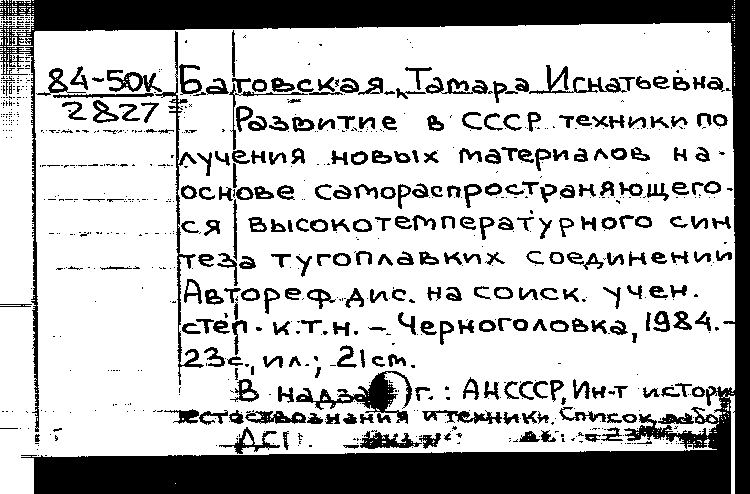 84-50к Батовская, Тамара Игнатьевна.
2827
Развитие в СССР техники по
лучения новых материалов на
основе самораспространяющего-
ся высокотемпературного син
теза тугоплавких соединений
Автореф. дис. на соиск. учен.
степ. к.т.н. – Черноголовка, 1984. –
23с., ил.; 21см.
В надзаг.: АН СССР, Ин-т истори
естествознания и техники. Список рабо
ДСП.